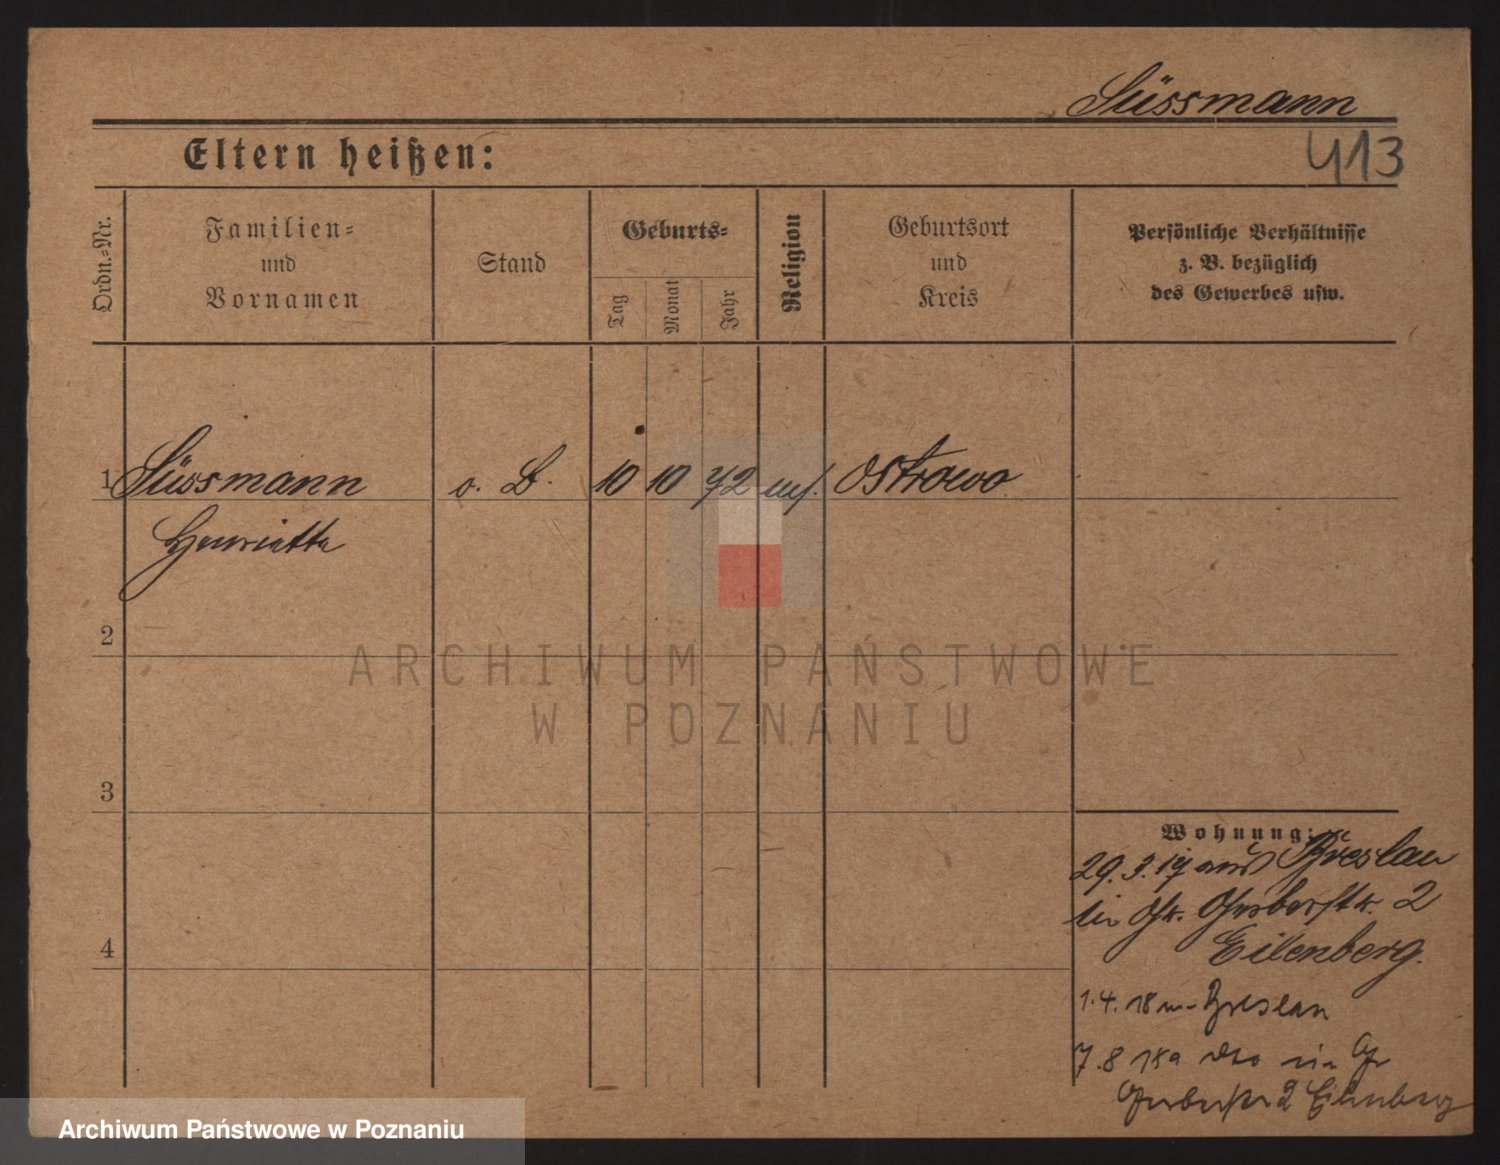 Süssmann
413
Eltern heißen:
Ordn.-Nr.
Familien-
und
Vornamen
Stand
Geburts-
Tag
Monat
Jahr
Religion
Geburtsort
und
Kreis
Persönliche Verhältnisse
z. B. bezüglich
des Gewerbes usw.
1 Süssmann o. B. 10 10 72 Ostrowo
Henriette
2
3
4
Wohnung:
29.3.17 aus Breslau
in Gr. Gerberstr. 2
Eilenberg.
1.4.18 n. Breslau
7.8 18 a dto in Gr
Gerberstr 2 Eilenberg
ARCHIWUM PAŃSTWOWE
W POZNANIU
Archiwum Państwowe w Poznaniu